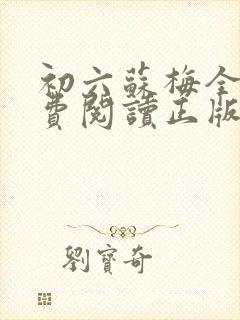 初六蘇梅全
費閱讀正版
劉寶奇